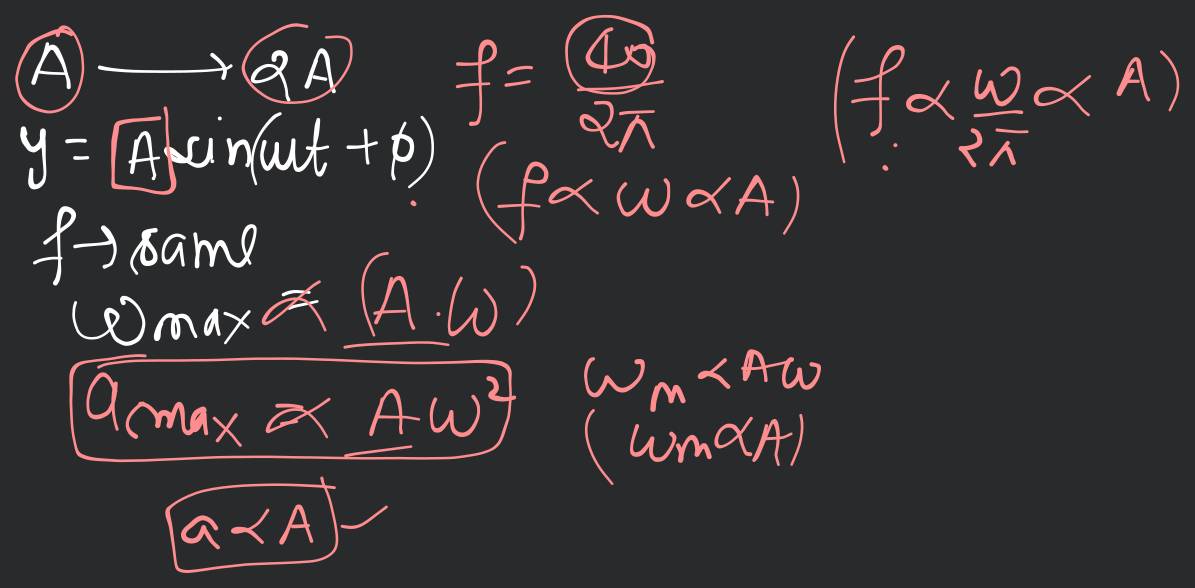 A → 2A
y = A sin(ωt + φ)
f → same
ωmax ∝ (A.ω)
amax ∝ Aω²
a ∝ A
f = ω/2π
(f ∝ ω ∝ A)
(f ∝ ω/2π ∝ A)
ωm ∝ Aω
(ωm ∝ A)